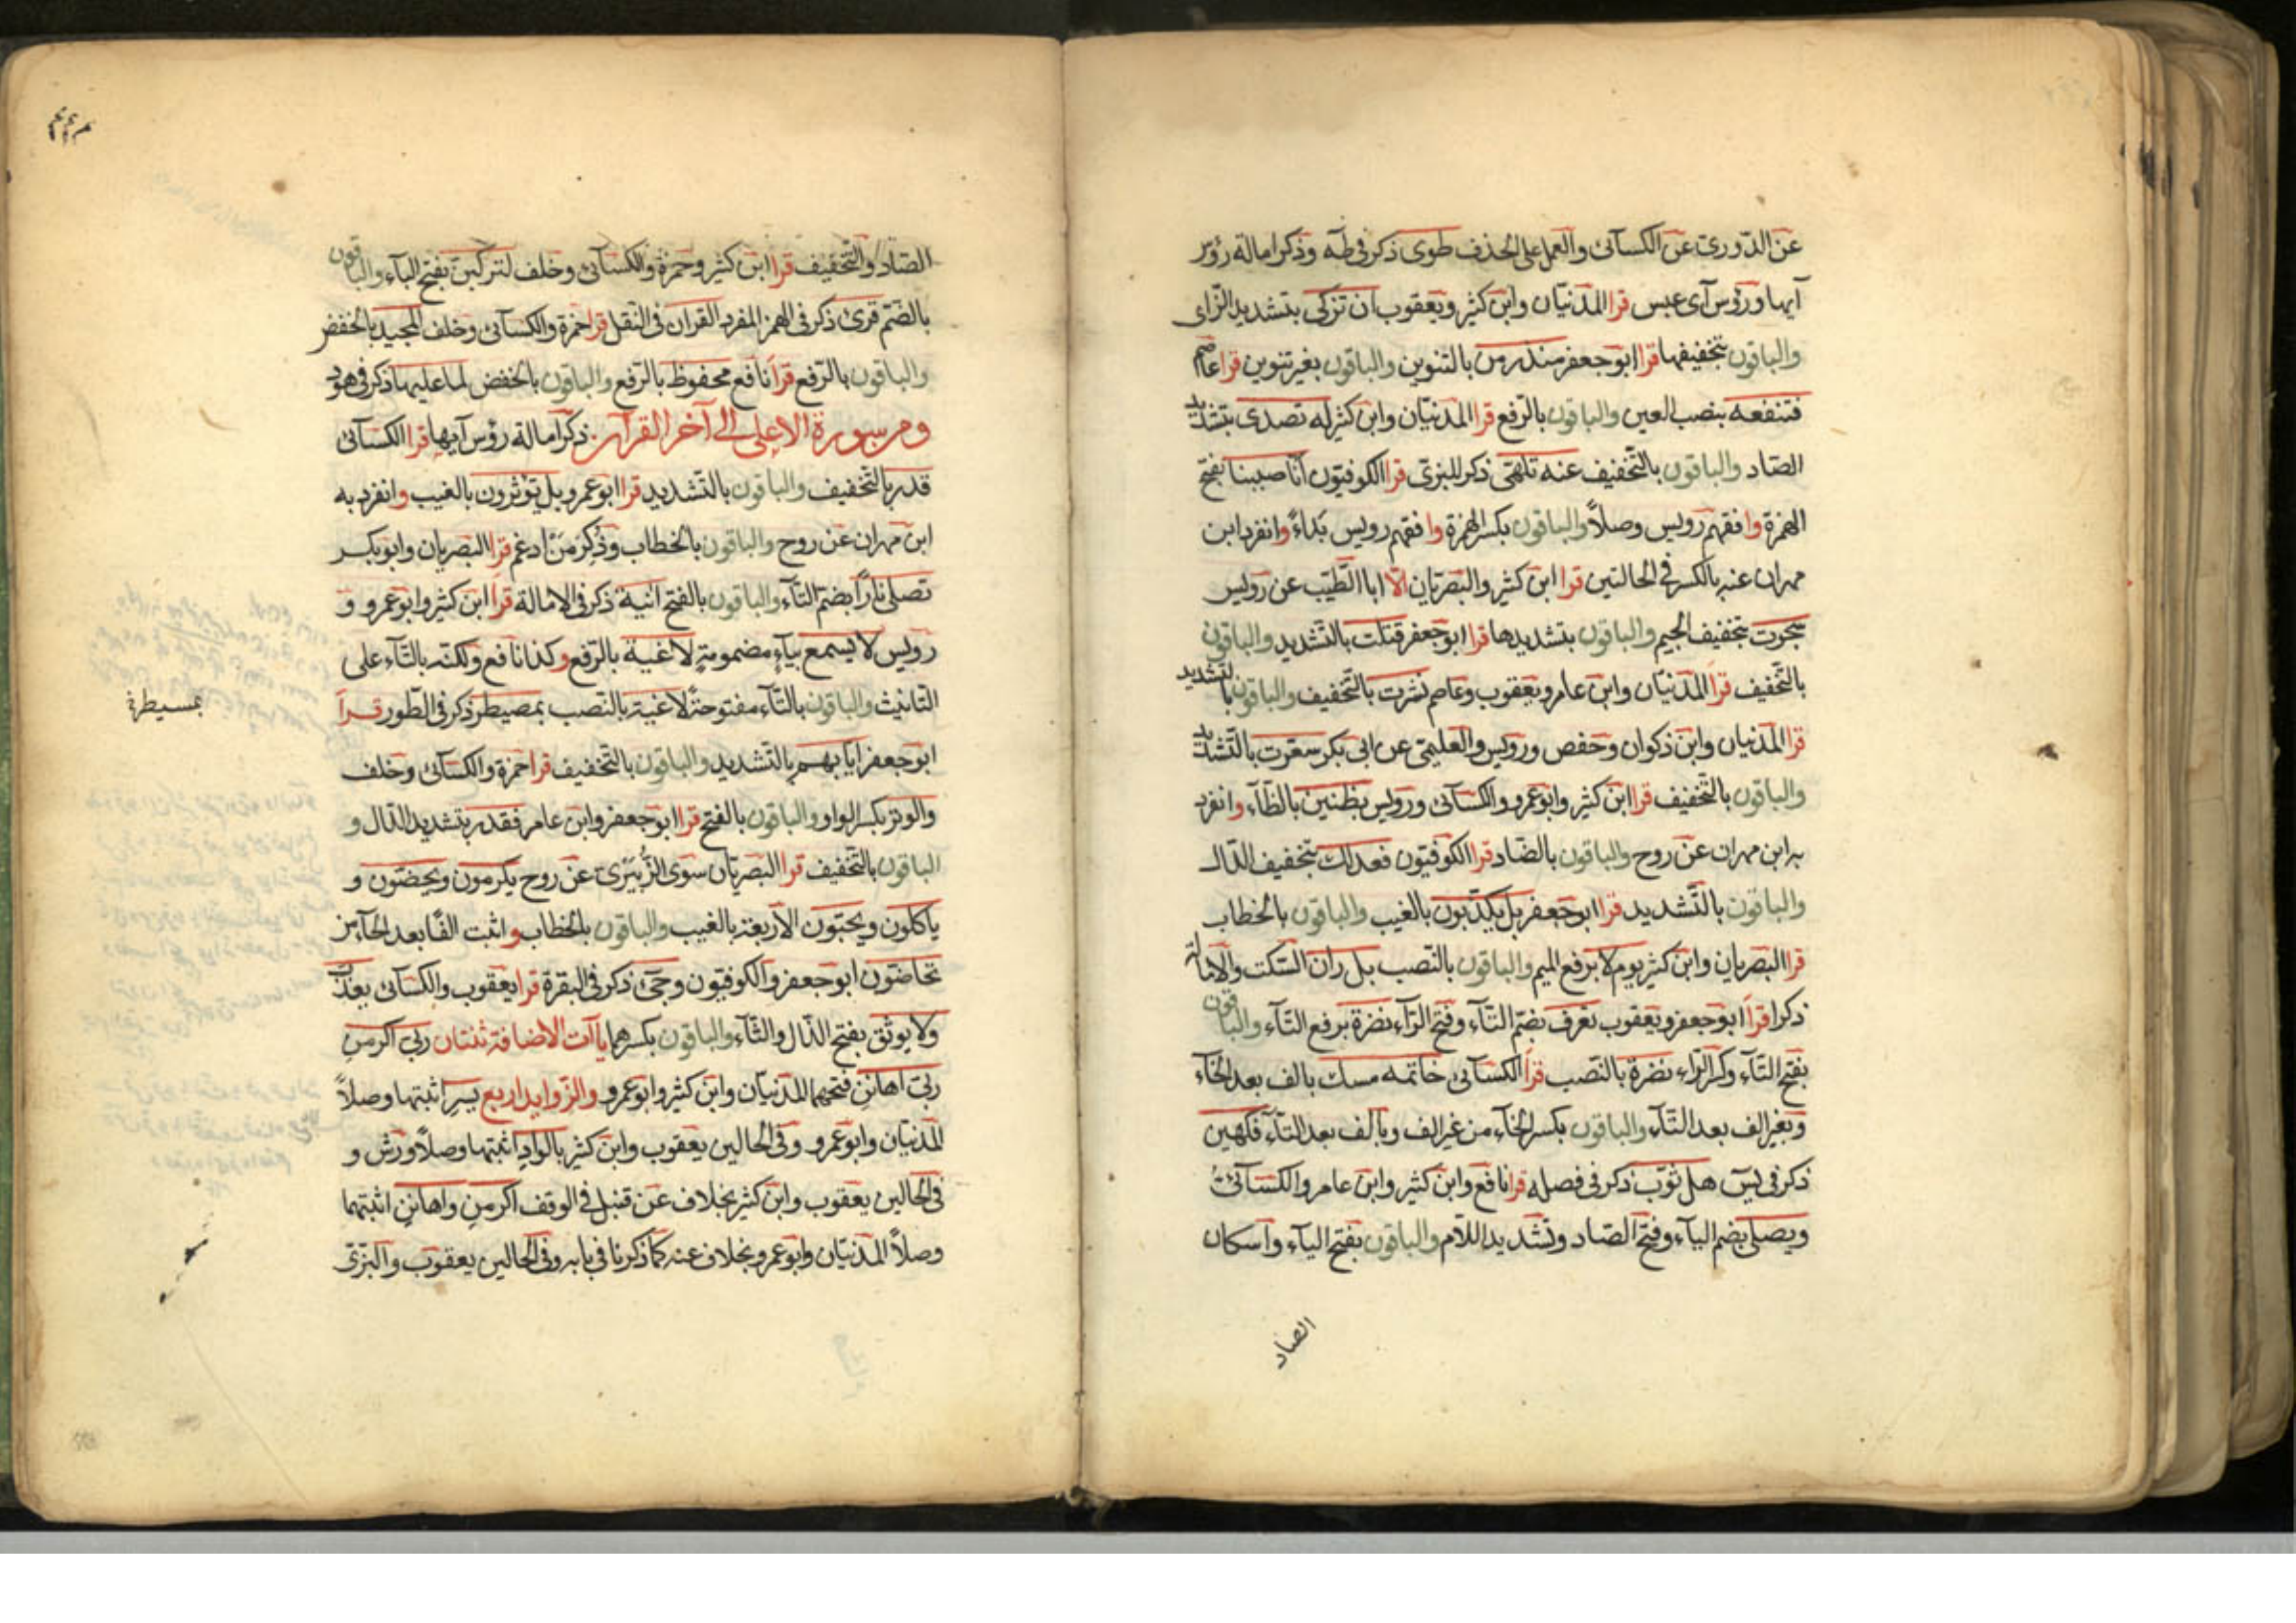 عن الدّوري عن الكسآئي والعمل على الحذف طوى ذكر في طه وذكر امالة رؤس
آيها ورؤس آي عبس قرا المدنيان وابن كثير ويعقوب ان تزكى بتشديد الزاى
والباقون بتخفيفها قرا ابو جعفر منذر من بالتنوين والباقون بغير تنوين قرا عاصم
فتنفعه بنصب العين والباقون بالرفع قرا المدنيّان وابن كثير له تصدى بتشديد
الصاد والباقون بالتخفيف عنه تلهى ذكر للبزي قرا الكوفيون انا صببنا بفتح
الهمزة وافقهم رويس وصلاً والباقون بكسر الهمزة وافقهم رويس بداءً وانفرد ابن
مهران عنه بالكسر في الحالتين قرا ابن كثير والبصريان الا ابا الطيّب عن رويس
سجرت بتخفيف الجيم والباقون بتشديدها قرا ابو جعفر قتلت بالتشديد والباقون
بالتخفيف قرا المدنيّان وابن عامر ويعقوب وعاصم نشرت بالتخفيف والباقون بالتشديد
قرا المدنيان وابن ذكوان وحفص ورويس والعليمي عن ابي بكر سعّرت بالتشديد
والباقون بالتخفيف قرا ابن كثير وابو عمرو والكسآئي ورويس بظنين بالظآء وانفرد
به ابن مهران عن روح والباقون بالضاد قرا الكوفيون فعدلك بتخفيف الدال
والباقون بالتشديد قرا ابو جعفر بل يكذبون بالغيب والباقون بالخطاب
قرا البصريان وابن كثير يوم لا برفع الميم والباقون بالنصب بل ران السكت والامالة
ذكرا قرا ابو جعفر ويعقوب تعرف بضم التآء وفتح الرآء نضرة برفع التآء والباقون
بفتح التآء وكسر الرآء نضرة بالنصب قرا الكسآئي خاتمه مسك بالف بعد الخآء
وبغير الف بعد التآء والباقون بكسر الخآء من غير الف وبالف بعد التآء فكهين
ذكر في يس هل ثوب ذكر في فصله قرا نافع وابن كثير وابن عامر والكسآئي
ويصلى بضم اليآء وفتح الصاد وتشديد اللام والباقون بفتح اليآء واسكان
الصاد
الصاد والتخفيف قرا ابن كثير وحمزة والكسآئي وخلف لتركبن بفتح البآء والباقون
بالضم قرئ ذكر في الهمز المفرد القران في النقل قرا حمزة والكسآئي وخلف المجيد بالخفض
والباقون بالرفع قرا نافع محفوظ بالرفع والباقون بالخفض لما عليها ذكر في هود
ومن سورة الاعلى الى آخر القرآن ذكر امالة رؤس آيها قرا الكسآئي
قدر بالتخفيف والباقون بالتشديد قرا ابو عمرو بل يؤثرون بالغيب وانفرد به
ابن مهران عن روح والباقون بالخطاب وذكر من ادغم قرا البصريان وابو بكر
تصلى نارًا بضم التآء والباقون بالفتح انية ذكر في الامالة قرا ابن كثير وابو عمرو و
رويس لا يسمع بيآء مضمومة لاغية بالرفع وكذا نافع ولكنه بالتآء على
التانيث والباقون بالتآء مفتوحة لاغية بالنصب بمصيطر ذكر في الطور قرا
بمسيطر
ابو جعفر ايابهم بالتشديد والباقون بالتخفيف قرا حمزة والكسآئي وخلف
والوتر بكسر الواو والباقون بالفتح قرا ابو جعفر وابن عامر فقدر بتشديد الدال و
الباقون بالتخفيف قرا البصريان سوى الزبيري عن روح يكرمون ويحضون و
ياكلون ويحبون الاربعة بالغيب والباقون بالخطاب واثبت الفًا بعد الحآء من
تحاضون ابو جعفر والكوفيون وجئ ذكر في البقرة قرا يعقوب والكسآئي يعذب
ولا يوثق بفتح الذال والثآء والباقون بكسرهما يآات الاضافة ثنتان ربي اكرمن
ربي اهانن فتحهما المدنيّان وابن كثير وابو عمرو والزوايد اربع يسر اثبتها وصلاً
المدنيان وابو عمرو وفي الحالين يعقوب وابن كثير بالواد اثبتها وصلاً ورش و
في الحالين يعقوب وابن كثير بخلاف عن قنبل في الوقف اكرمن واهانن اثبتهما
وصلاً المدنيّان وابو عمرو بخلاف عنه كما ذكرنا في بابه وفي الحالين يعقوب والبزي